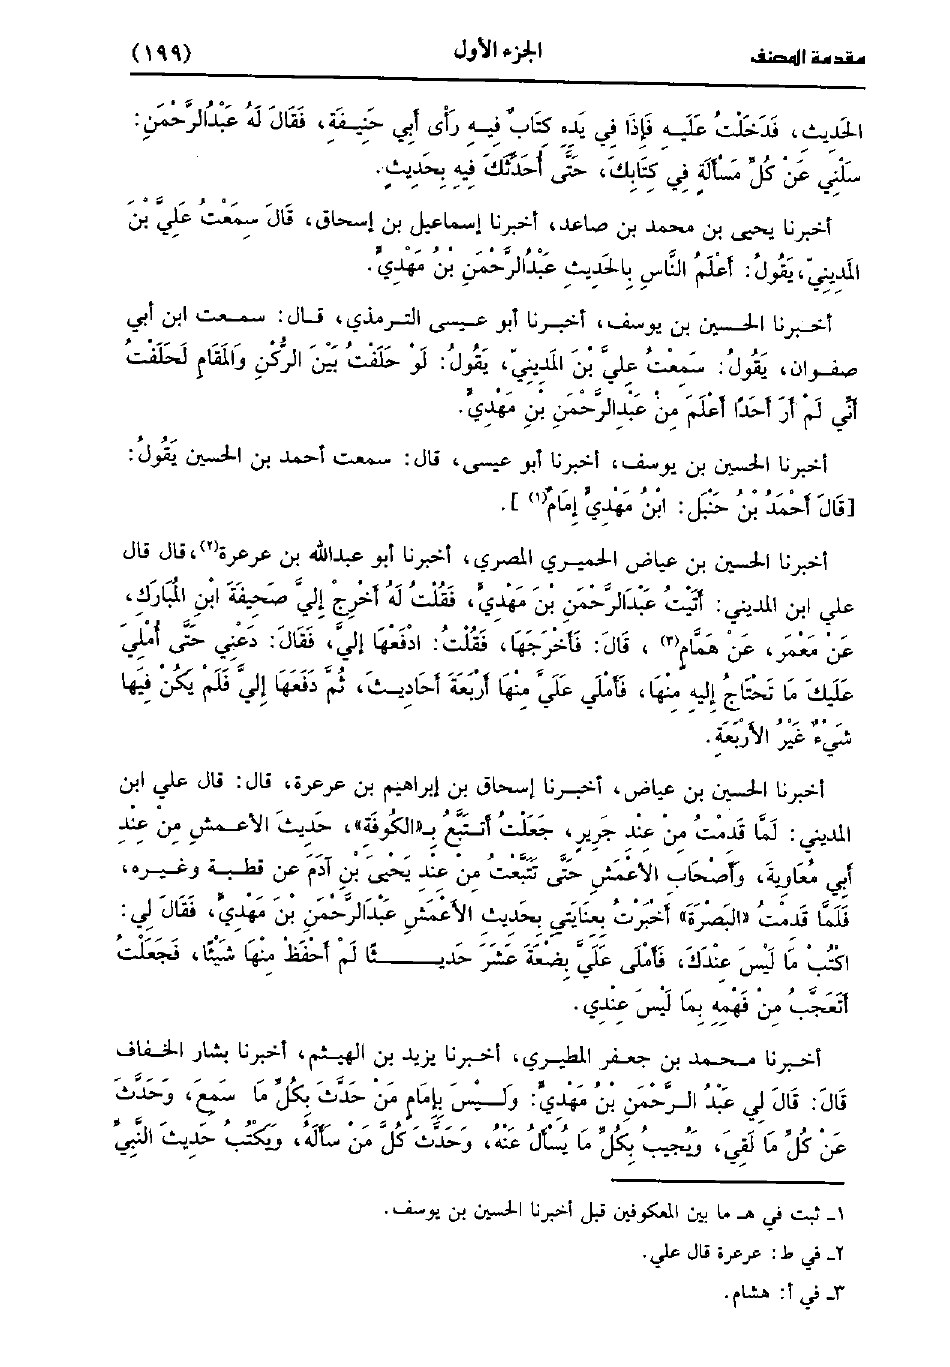 مقدمة المصنف الجزء الأول (١٩٩)
الحديث، فَدَخَلْتُ عَلَيهِ فَإِذَا فِي يَدِهِ كِتَابٌ فِيهِ رَأْى أَبِي حَنِيفَةِ، فَقَالَ لَهُ عَبْدُالرَّحْمَنِ:
سَلْنِي عَنْ كُلِّ مَسْأَلَةٍ فِي كِتَابِكَ، حَتَّى أُحَدِّثَكَ فِيهِ بِحَدِيثٍ.
أخبرنا يحيى بن محمد بن صاعد، أخبرنا إسماعيل بن إسحاق، قَالَ سَمِعْتُ عَلِيَّ بْنَ
المَدِينِيِّ، يَقُولُ: أَعْلَمُ النَّاسِ بِالحَدِيثِ عَبْدُالرَّحْمَنِ بْنُ مَهْدِيٍّ.
أخبرنا الحسين بن يوسف، أخبرنا أبو عيسى الترمذي، قال: سمعت ابن أبي
صفوان، يَقُولُ: سَمِعْتُ عَلِيَّ بْنَ المَدِينِيِّ، يَقُولُ: لَوْ حَلَفْتُ بَيْنَ الرُّكْنِ وَالمَقَامِ لَحَلَفْتُ
أَنِّي لَمْ أَرَ أَحَدًا أَعْلَمَ مِنْ عَبْدِالرَّحْمَنِ بْنِ مَهْدِيٍّ.
أخبرنا الحسين بن يوسف، أخبرنا أبو عيسى، قال: سمعت أحمد بن الحسين يَقُولُ:
[قَالَ أَحْمَدُ بْنُ حَنْبَلٍ: ابْنُ مَهْدِيٍّ إِمَامٌ(١)].
أخبرنا الحسين بن عياض الحميري المصري، أخبرنا أبو عبدالله بن عرعرة(٢)، قال قال
علي ابن المديني: أَتَيْتُ عَبْدَالرَّحْمَنِ بْنَ مَهْدِيٍّ، فَقُلْتُ لَهُ أَخْرِجْ إِلِيَّ صَحِيفَةَ ابْنِ المُبَارَكِ،
عَنْ مَعْمَرٍ، عَنْ هَمَّامٍ(٣) ، قَالَ: فَأَخْرَجَهَا، فَقُلْتُ: ادْفَعْهَا إِلِيَّ، فَقَالَ: دَعْنِي حَتَّى أُمْلِيَ
عَلَيكَ مَا تَحْتَاجُ إليهِ مِنْهَا، فَأَمْلَي عَلَيَّ مِنْهَا أَرْبَعَةَ أَحَادِيثَ، ثُمَّ دَفَعَهَا إِلِيَّ فَلَمْ يَكُنْ فِيهَا
شَيْءٌ غَيْرُ الأَرْبَعَةِ.
أخبرنا الحسين بن عياض، أخبرنا إسحاق بن إبراهيم بن عرعرة، قال: قال علي ابن
المديني: لَمَّا قَدِمْتُ مِنْ عِنْدِ جَرِيرٍ، جَعَلْتُ أَتَتَبَّعُ بِـ«الكُوفَةِ»، حَدِيثَ الأَعْمَشِ مِنْ عِنْدِ
أَبِي مُعَاوِيَةَ، وَأَصْحَابِ الأَعْمَشِ حَتَّى تَتَبَّعْتُ مِنْ عِنْدِ يَحْيَى بْنِ آدَمَ عَنْ قطبة وغيره،
فَلَمَّا قَدِمْتُ «البَصْرَةَ» أَخْبَرْتُ بِعِنَايَتِي بِحَدِيثِ الأَعْمَشِ عَبْدَالرَّحْمَنِ بْنَ مَهْدِيٍّ، فَقَالَ لِي:
اكْتُبْ مَا لَيْسَ عِنْدَكَ، فَأَمْلَى عَلَيَّ بِضْعَةَ عَشَرَ حَدِيـــــثًا لَمْ أَحْفَظْ مِنْهَا شَيْئًا، فَجَعَلْتُ
أَتَعَجَّبُ مِنْ فَهْمِهِ بِمَا لَيْسَ عِنْدِي.
أخبرنا محمد بن جعفر المطيري، أخبرنا يزيد بن الهيثم، أخبرنا بشار الخفاف
قَالَ: قَالَ لِي عَبْدُ الرَّحْمَنِ بْنُ مَهْدِيٍّ: وَلَيْسَ بِإِمَامٍ مَنْ حَدَّثَ بِكُلِّ مَا سَمِعَ، وَحَدَّثَ
عَنْ كُلِّ مَا لَقِيَ، وَيُجِيبُ بِكُلِّ مَا يُسْأَلُ عَنْهُ، وَحَدَّثَ كُلَّ مَنْ سَأَلَهُ، وَيَكْتُبُ حَدِيثَ النَّبِيِّ
١ـ ثبت في هـ ما بين المعكوفين قبل أخبرنا الحسين بن يوسف.
٢ـ في ط: عرعرة قال علي.
٣ـ في أ: هشام.